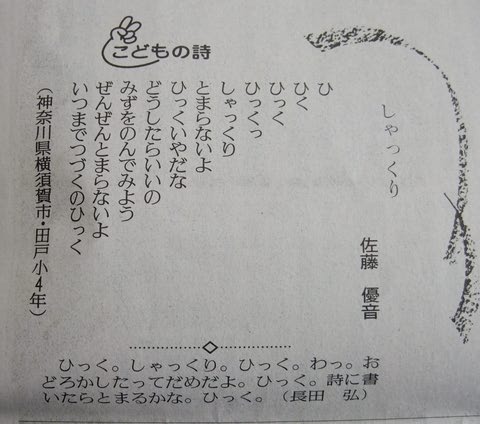 こどもの詩
しゃっくり
佐藤 優音
ひ
ひく
ひっく
ひっくっ
しゃっくり
とまらないよ
ひっくいやだな
どうしたらいいの
みずをのんでみよう
ぜんぜんとまらないよ
いつまでつづくのひっく
(神奈川県横須賀市・田戸小4年)
ひっく。しゃっくり。ひっく。わっ。お
どろかしたってだめだよ。ひっく。詩に書
いたらとまるかな。ひっく。(長田 弘)